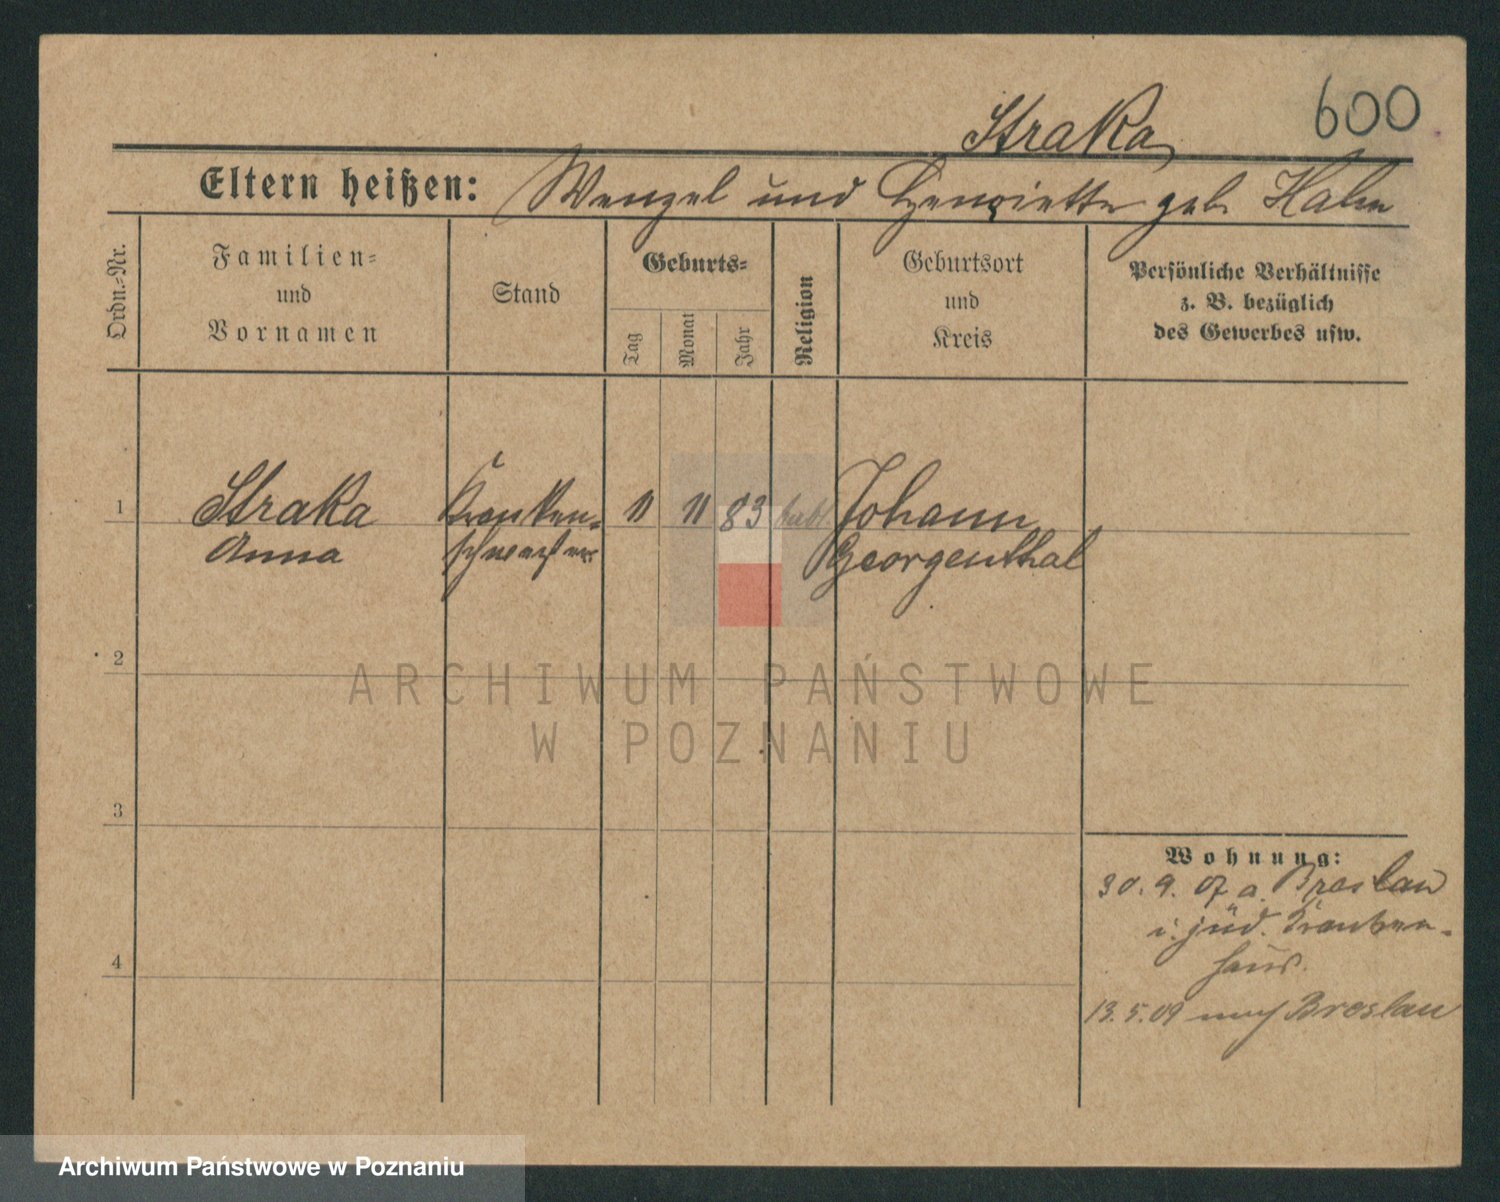 600
Straka
Eltern heißen: Wenzel und Henriette geb. Hahn
Ordn.-Nr.
Familien-
und
Vornamen
Stand
Geburts-
Tag
Monat
Jahr
Religion
Geburtsort
und
Kreis
Persönliche Verhältnisse
z. B. bezüglich
des Gewerbes usw.
1
Straka
Anna
Kranken-
schwester
11
11
83
Johann
Georgenthal
2
3
4
Wohnung:
30. 9. 07 a. Breslau
i. jüd. Kranken-
haus.
13. 5. 09 nach Breslau
ARCHIWUM PAŃSTWOWE
W POZNANIU
Archiwum Państwowe w Poznaniu